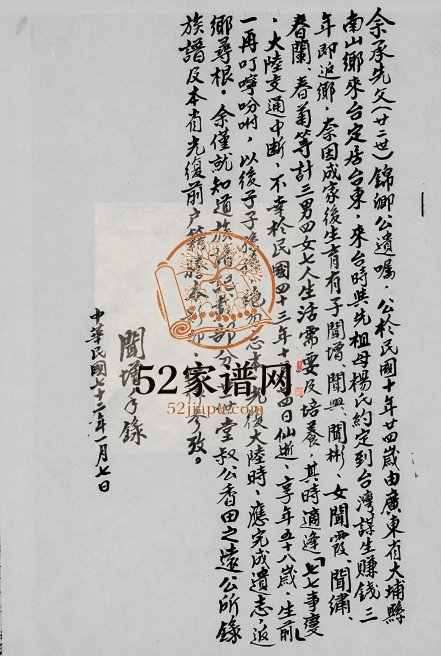 余承先父(廿二世)錦卿公遺囑,公於民國十年廿四歲由廣東省大埔縣
南山鄉來台定居台東,來台時與先祖母楊氏約定到台灣謀生賺錢三
年即返鄉,奈因成家後生育有子聞增、聞興、聞彬、女聞霞、聞繡、
春蘭、春菊等計三男四女七人生活需要及培養,其時適逢「七七事變」
,大陸交通中斷,不幸於民國四十三年十 四日仙逝、享年五十八歲,生前
一再叮嚀吩咐,以後子子孫孫 絕勿忘本 光復大陸時、應完成遺志,返
鄉尋根。余僅就知道族譜記載部分 堂叔公香田之遠公所錄
族譜及本省光復前户籍謄本 參攷。
聞增手錄
中華民國七十二年一月七日
52家谱网
52jiapu.com